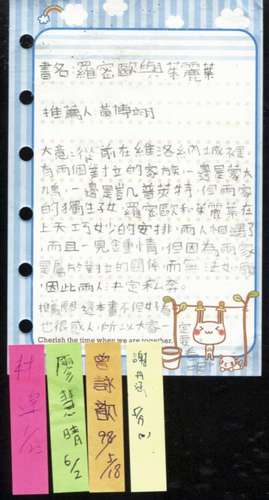 書名 羅密歐與茱麗葉
推薦人 黃博翊
大意:從前在維洛納城裡,
有兩個對立的家族,一邊是蒙太
鳩,一邊是凱普萊特,但兩家
的獨生子女 羅密歐和茱麗葉在
上天巧妙的安排,兩人相遇了
,而且一見鍾情,但因為兩家
是屬於對立的關係,而無法如願
,因此兩人決定私奔。
推薦原因:這本書不但好看
也很感人,所以大家一
定要看
Cherish the time when we are together.
廖慧晴
6/2
98
5/18